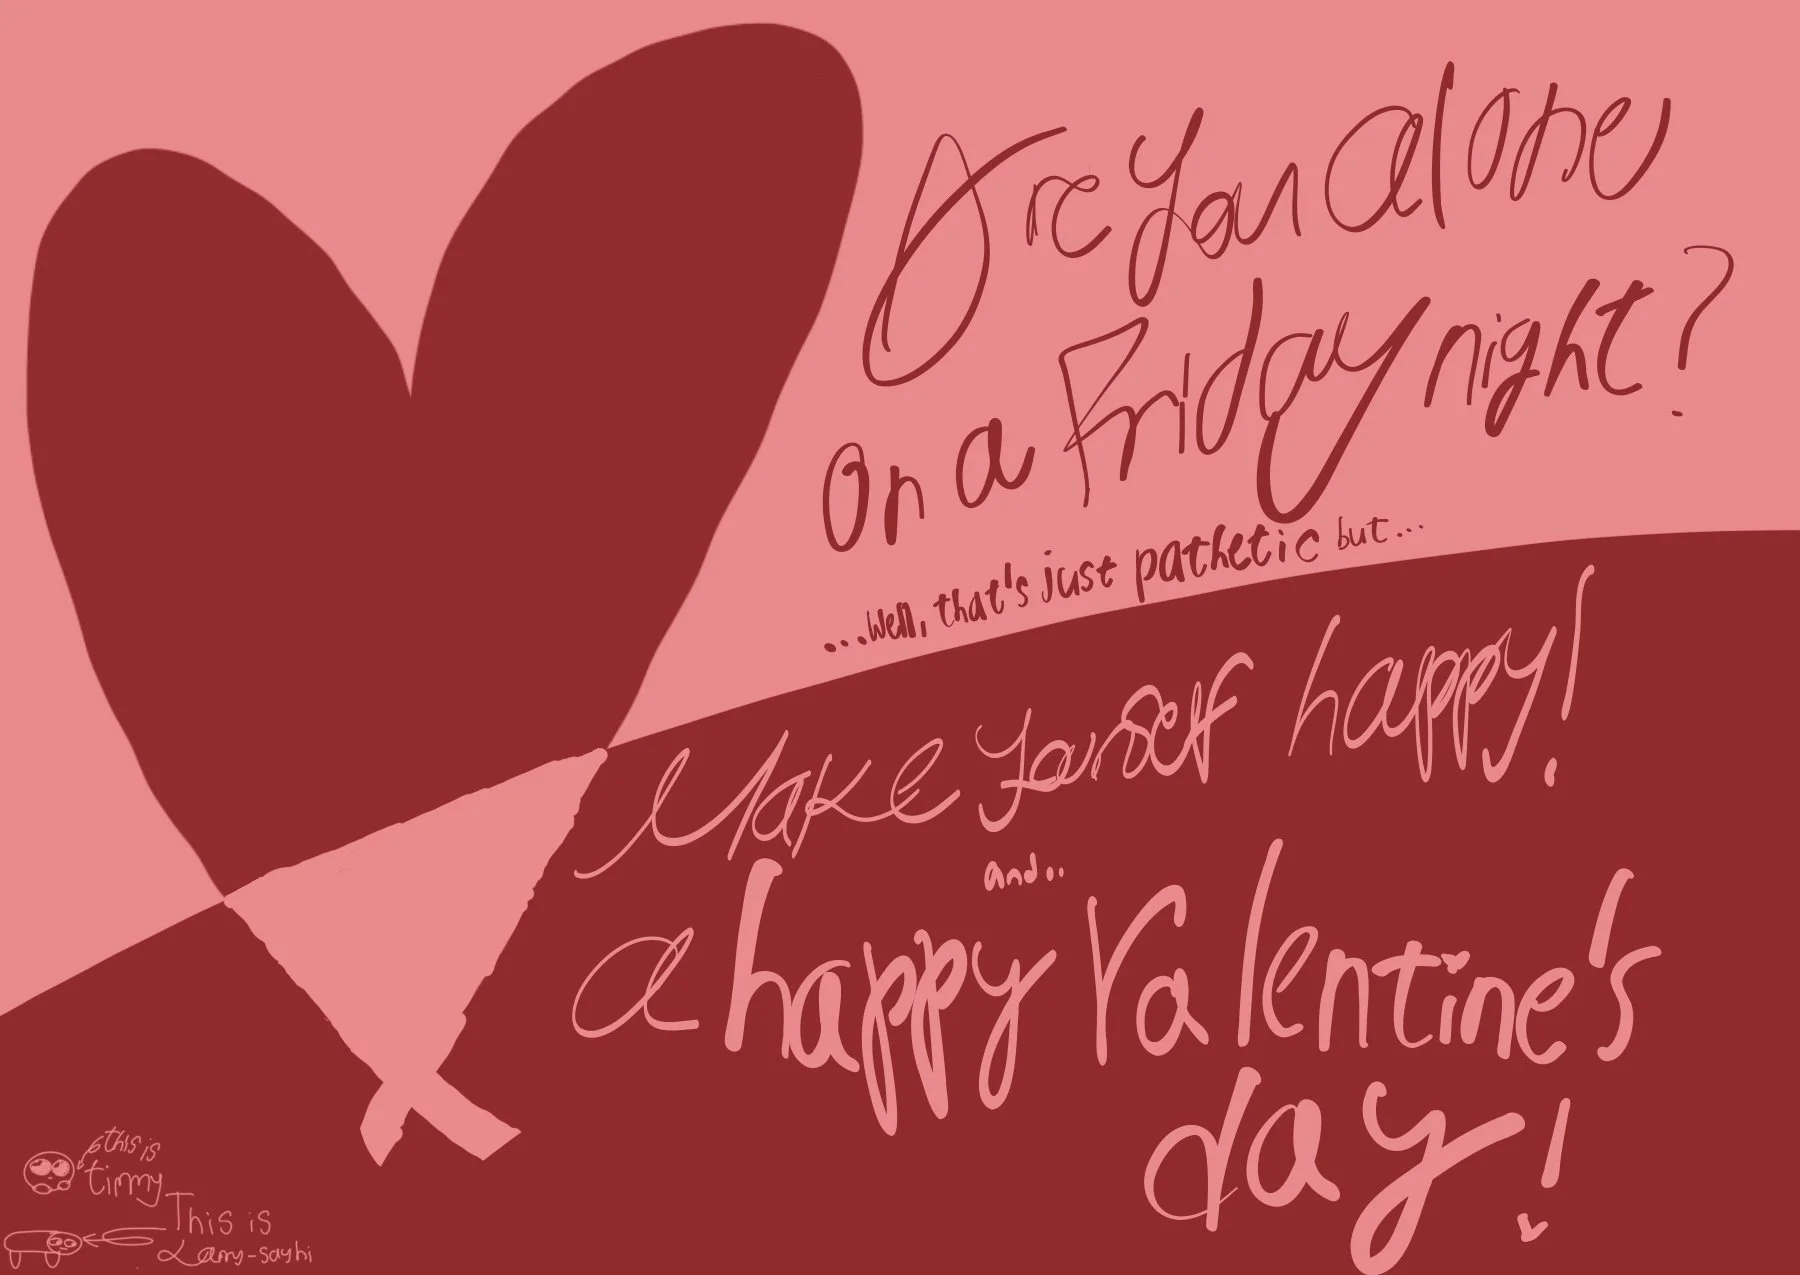 Are you alone
on a Friday night?
...Well, that's just pathetic but...
Make yourself happy!
and..
a happy Valentine's
day!
this is
timmy
This is
Larry-say hi